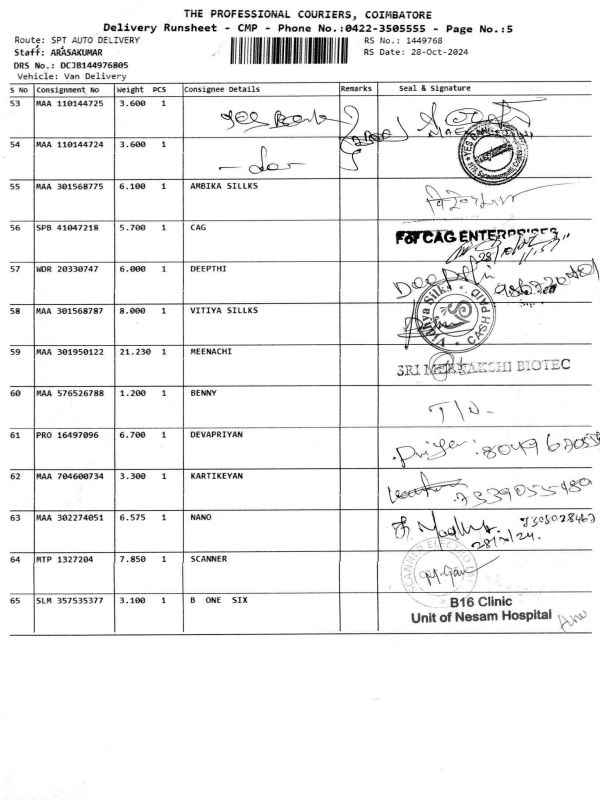 THE PROFESSIONAL COURIERS, COIMBATORE
Delivery Runsheet - CMP - Phone No.:0422-3505555 - Page No.:5
Route: SPT AUTO DELIVERY RS No.: 1449768
Staff: ARASAKUMAR RS Date: 28-Oct-2024
DRS No.: DCJB144976805
Vehicle: Van Delivery
S No Consignment No Weight PCS Consignee Details Remarks Seal & Signature
53 MAA 110144725 3.600 1 Yes Bank
54 MAA 110144724 3.600 1 YES BANK
55 MAA 301568775 6.100 1 AMBIKA SILLKS
56 SPB 41047218 5.700 1 CAG For CAG ENTERPRISES
57 WDR 20330747 6.000 1 DEEPTHI Deepthi
58 MAA 301568787 8.000 1 VITIYA SILLKS Vidhya Silks CASH PAID
59 MAA 301950122 21.230 1 MEENACHI SRI MEENAKSHI BIOTEC
60 MAA 576526788 1.200 1 BENNY T/N.
61 PRO 16497096 6.700 1 DEVAPRIYAN Priyan
62 MAA 704600734 3.300 1 KARTIKEYAN
63 MAA 302274051 6.575 1 NANO
64 MTP 1327204 7.850 1 SCANNER SCANNER
65 SLM 357535377 3.100 1 B ONE SIX B16 Clinic
Unit of Nesam Hospital